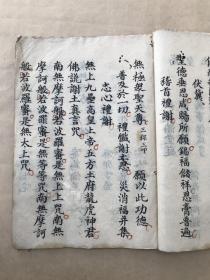 伏冀
聖德垂恩咸賜所願錫福儲祥恩膏普遍
稽首禮謝
無極衆聖天尊
願以此功德
普及於一切 禮懺謝太恩 災消福來集
志心禮謝
無上九壘高皇上帝五方土府龍虎神君
佛說謝土真言咒
南無摩訶般若波羅蜜是無上咒
摩訶般若波羅蜜是無等等咒南無摩訶
般若波羅蜜是無太上咒